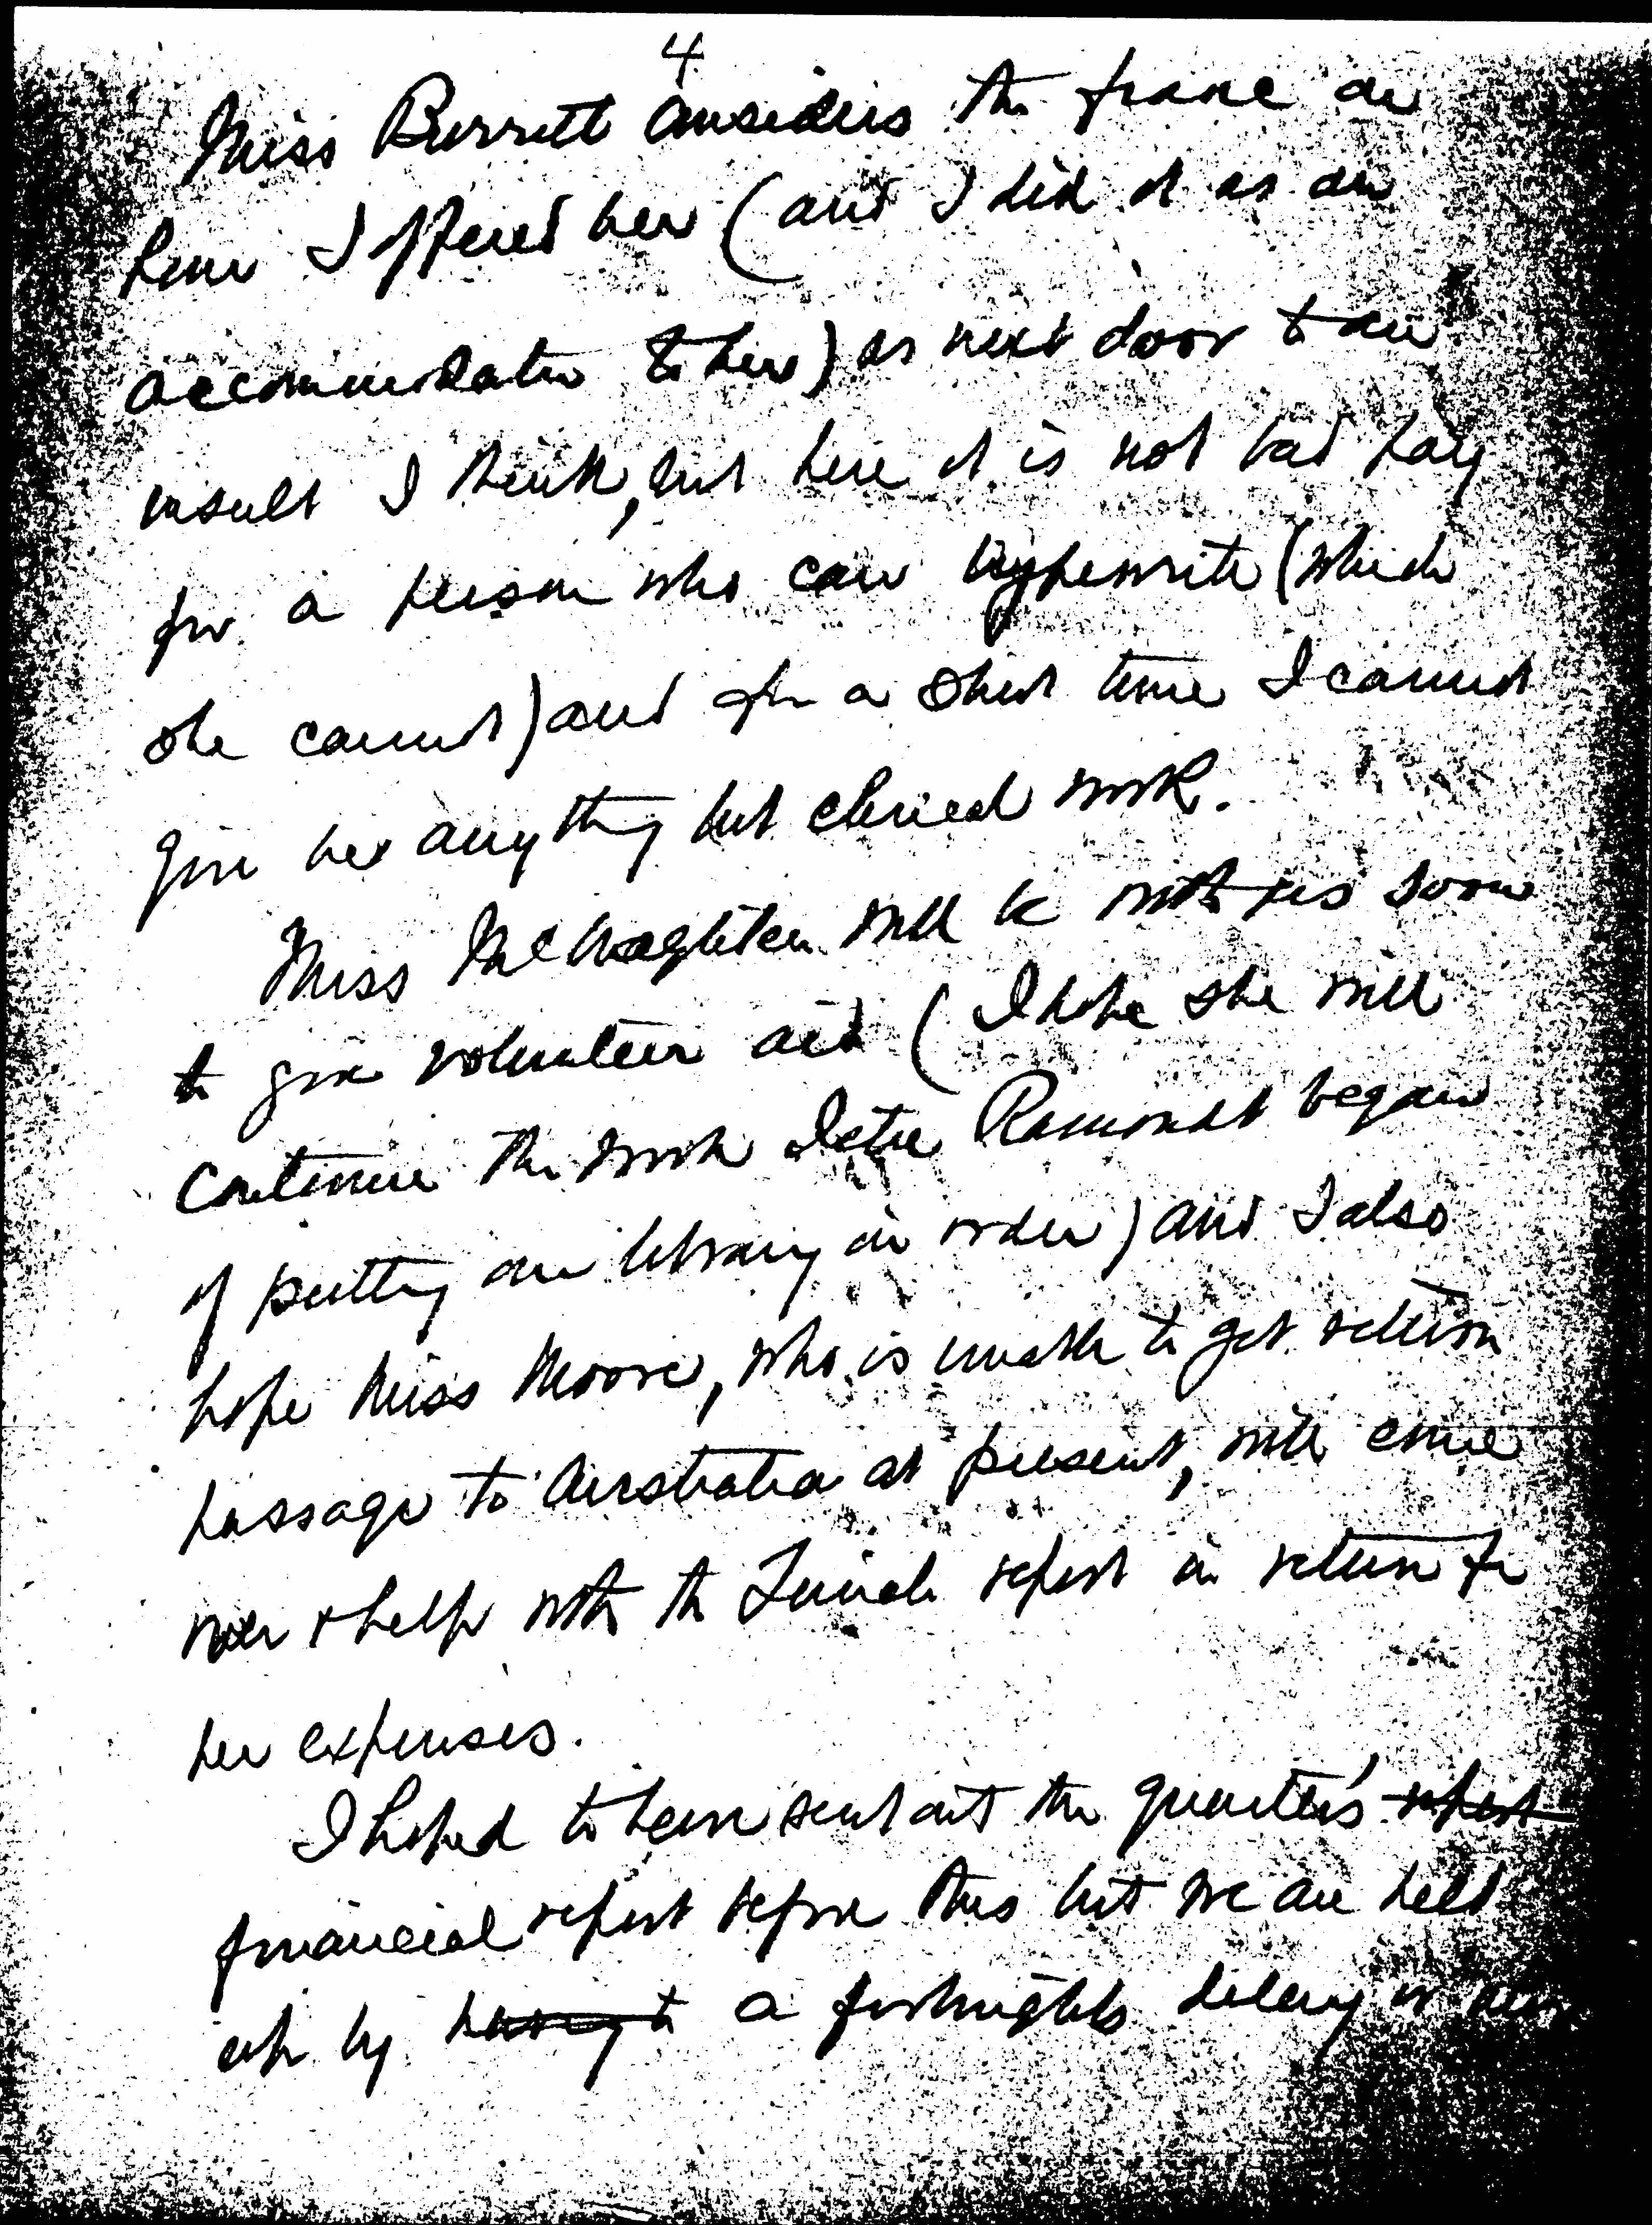 4
Miss Burritt considers the franc an
hour I offered her (and I did it as an
accommodation to her) as next door to an
insult I think, but here it is not bad pay
for a person who can typewrite (which
she cannot) and for a short time I cannot
give her anything but clerical work.
Miss McNaghten will be with us soon
to give volunteer aid (I hope she will
continue the work Ramondt began
of putting our library in order) and I also
hope Miss Moore, who is unable to get return
passage to Australia at present, will come
over & help with the Zurich report in return for
her expenses.
I hoped to have sent out the quarter's report
financial report before this but we are held
up by having to a fortnight's delay in